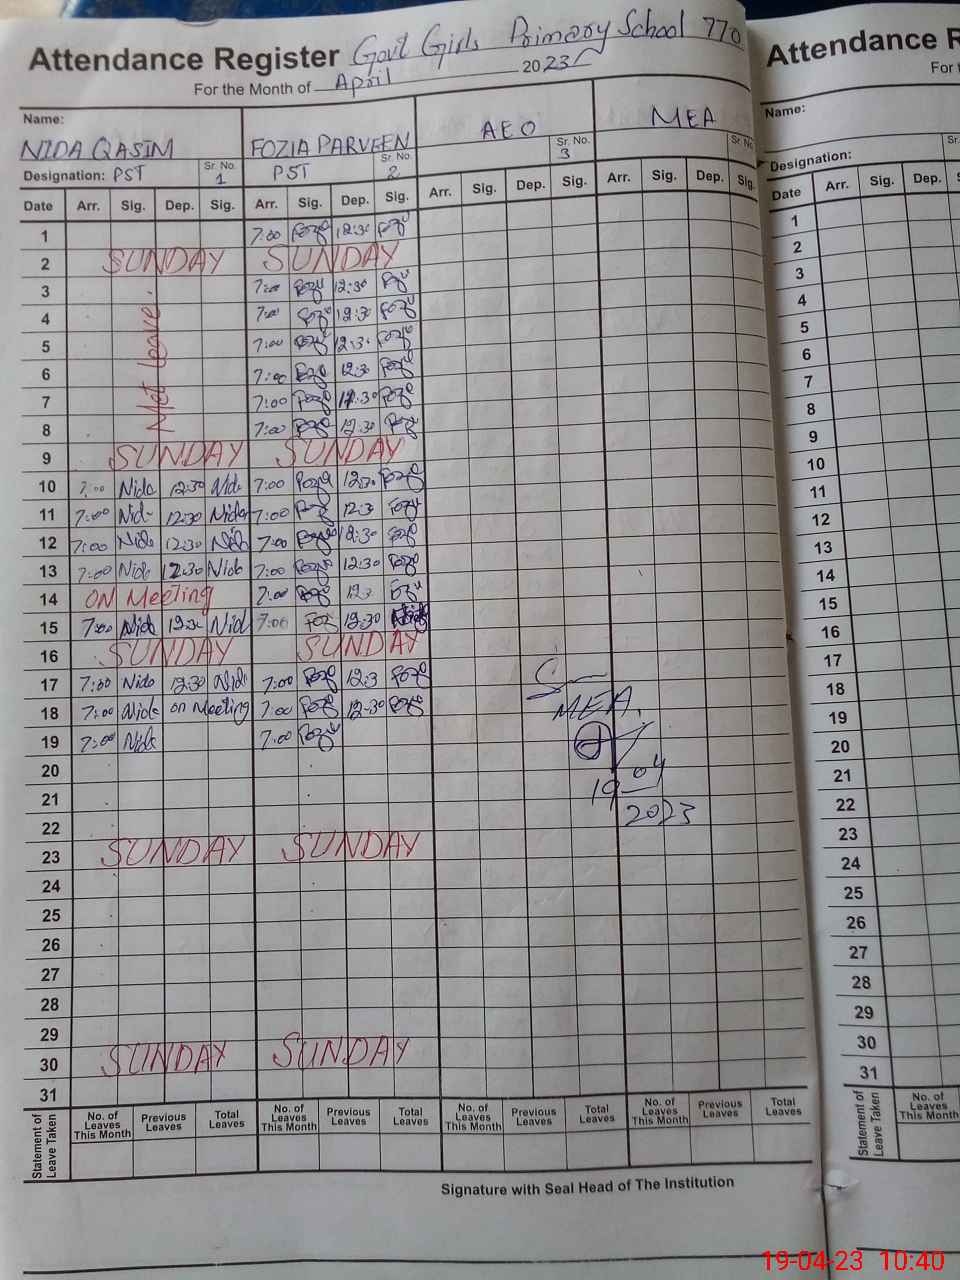 Attendance Register Govt Girls Primary School 770
For the Month of April 2023
Name:
NIDA QASIM FOZIA PARVEEN AEO MEA
Designation: PST Sr. No. 1 PST Sr. No. 2 Sr. No. 3 Sr. No.
Date Arr. Sig. Dep. Sig. Arr. Sig. Dep. Sig. Arr. Sig. Dep. Sig. Arr. Sig. Dep. Sig.
1 7:00 12:30
2 SUNDAY SUNDAY
3 7:00 12:30
4 7:00 12:30
5 7:00 12:30
6 7:00 12:30
7 7:00 12:30
8 7:00 12:30
Leave
9 SUNDAY SUNDAY
10 7:00 Nida 12:30 Nida 7:00 12:30
11 7:00 Nida 12:30 Nida 7:00 12:3
12 7:00 Nida 12:30 Nida 7:00 12:30
13 7:00 Nida 12:30 Nida 7:00 12:30
14 ON Meeting 7:00 12:3
15 7:00 Nida 12:30 Nida 7:00 12:30
16 SUNDAY SUNDAY
17 7:00 Nida 12:30 Nida 7:00 12:3
18 7:00 Nida on Meeting 7:00 12:30
19 7:00 Nida 7:00
MEA.
19 04
2023
20
21
22
23 SUNDAY SUNDAY
24
25
26
27
28
29
30 SUNDAY SUNDAY
31
Statement of Leave Taken
No. of Leaves This Month Previous Leaves Total Leaves No. of Leaves This Month Previous Leaves Total Leaves No. of Leaves This Month Previous Leaves Total Leaves No. of Leaves This Month Previous Leaves Total Leaves
Signature with Seal Head of The Institution
Attendance R
For t
Name:
Designation: Sr.
Date Arr. Sig. Dep. S
1
2
3
4
5
6
7
8
9
10
11
12
13
14
15
16
17
18
19
20
21
22
23
24
25
26
27
28
29
30
31
Statement of Leave Taken
No. of Leaves This Month
19-04-23 10:40